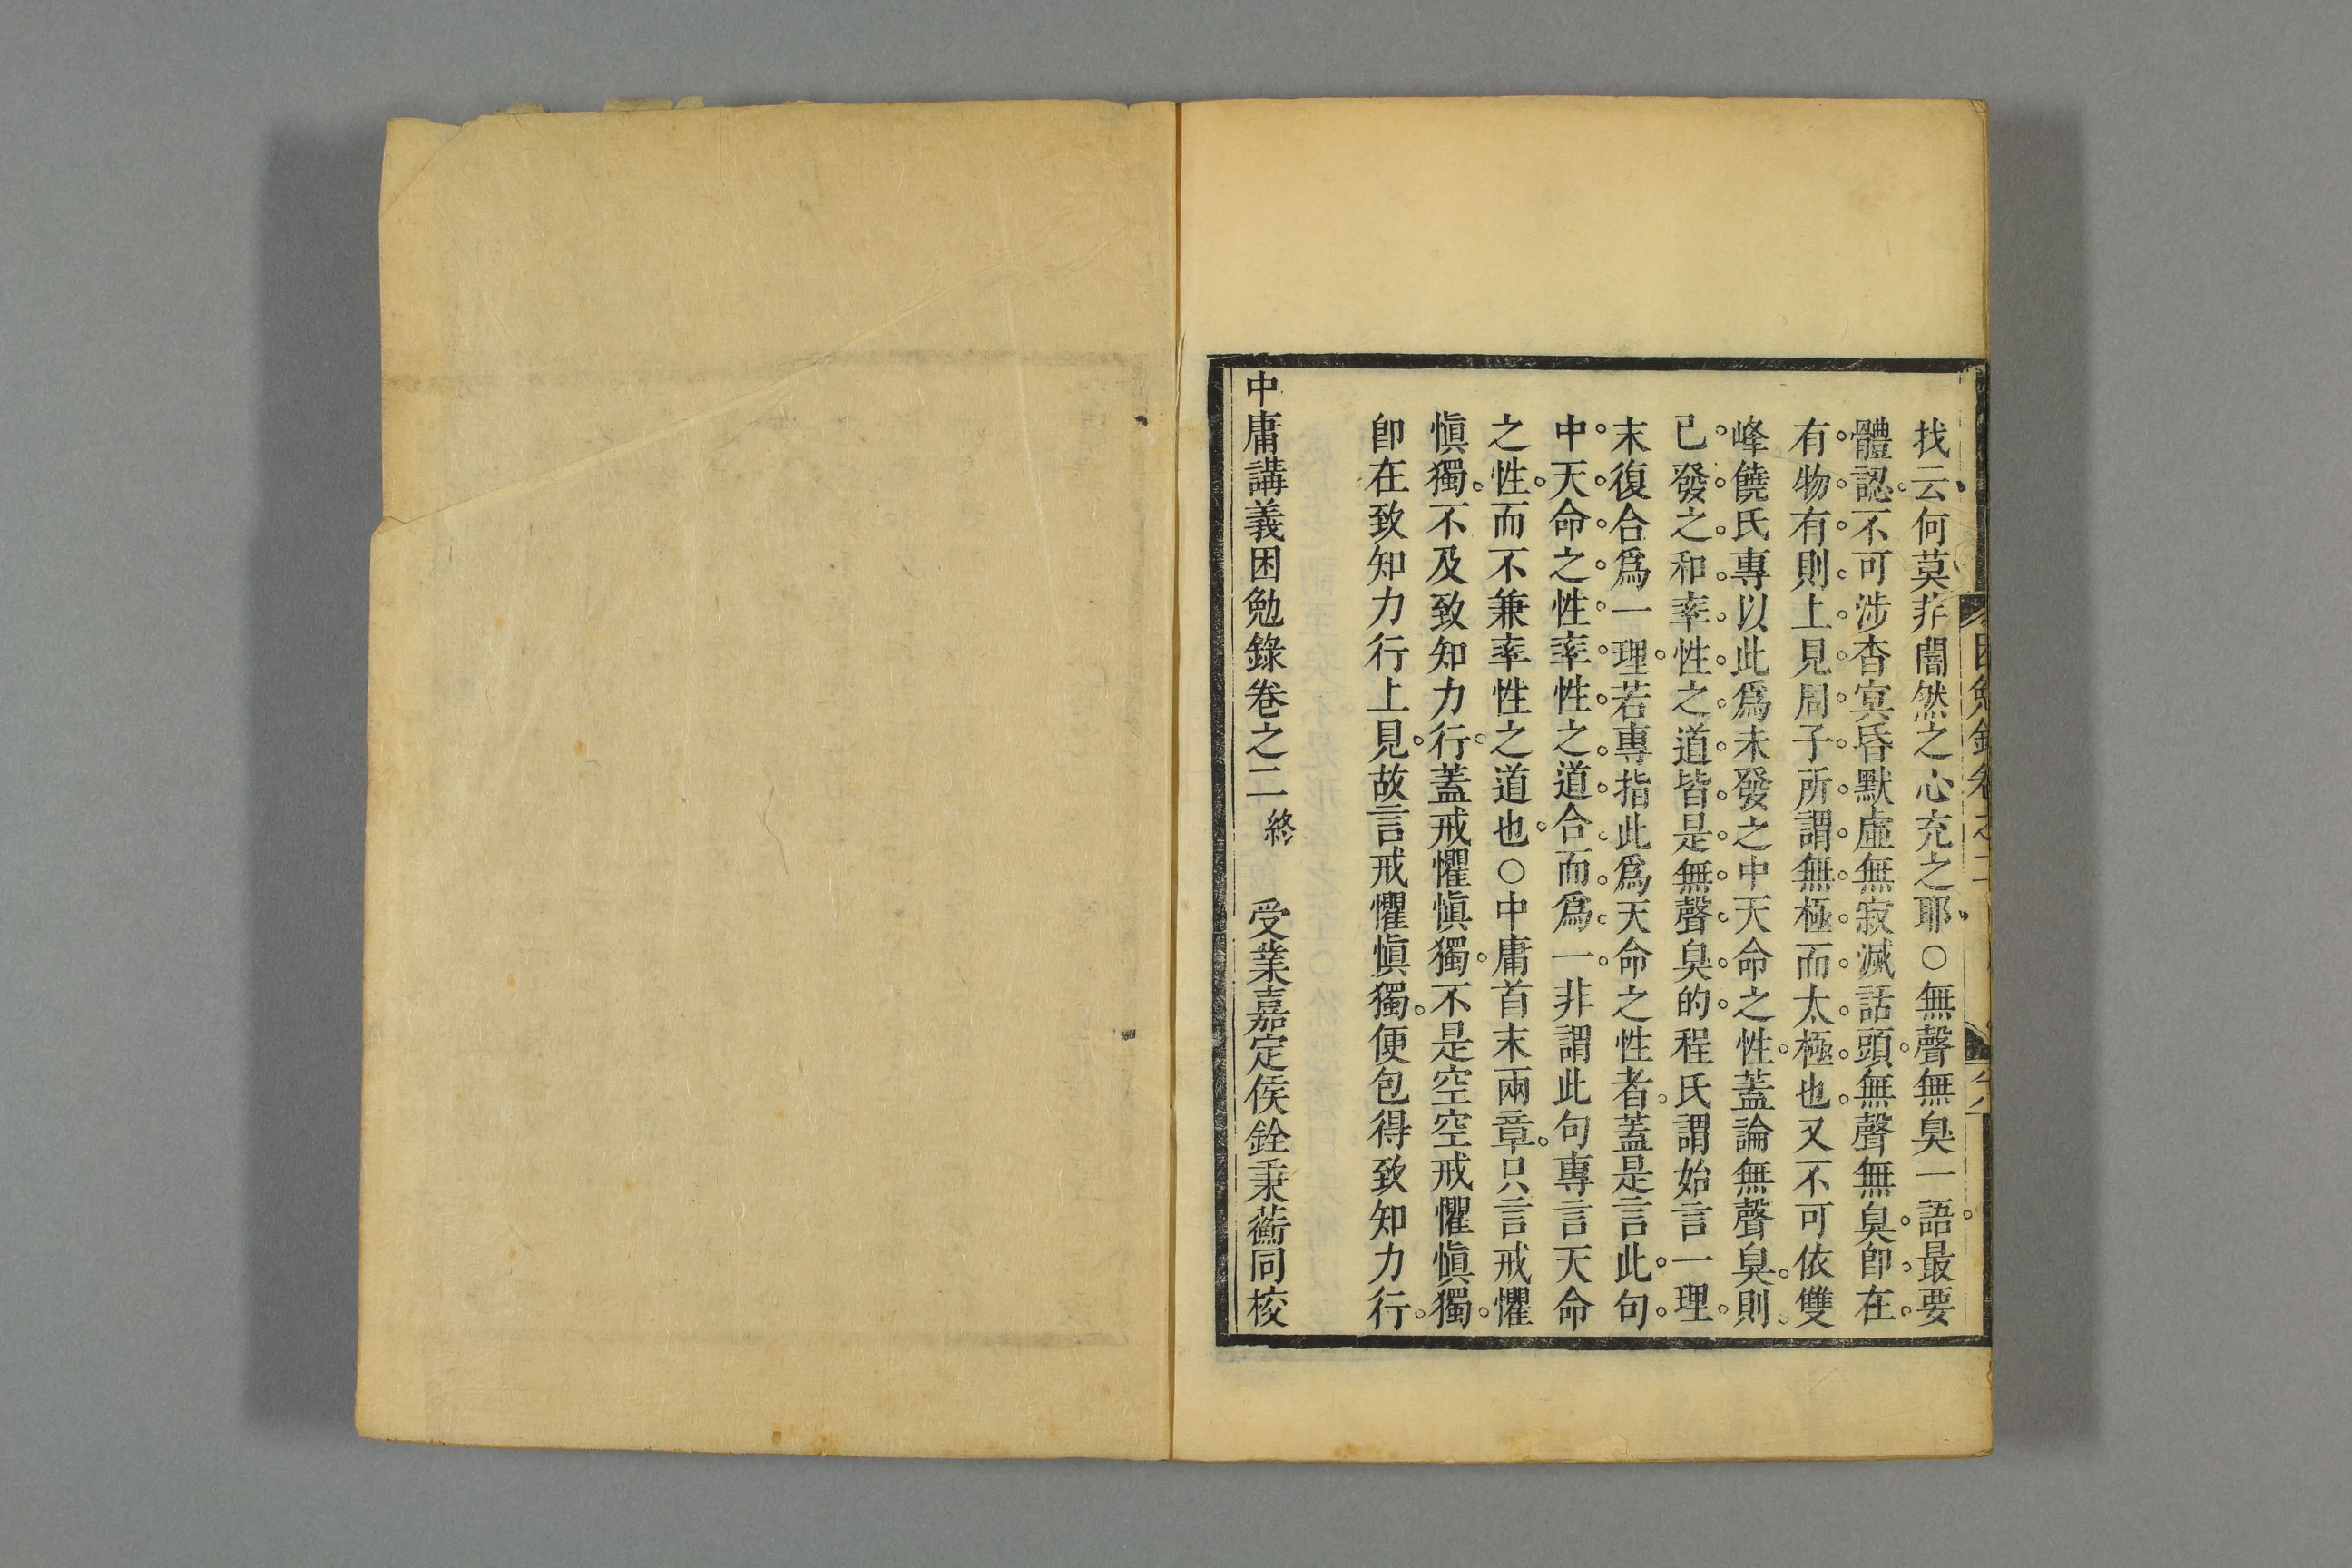 困勉錄卷之二
找云何莫非闇然之心充之耶○無聲無臭一語最要
體認不可涉杳冥昏默虛無寂滅話頭無聲無臭卽在
有物有則上見周子所謂無極而太極也又不可依雙
峰饒氏專以此爲未發之中天命之性蓋論無聲臭則
已發之和率性之道皆是無聲臭的程氏謂始言一理
末復合爲一理若專指此爲天命之性者蓋是言此句
中天命之性率性之道合而爲一非謂此句專言天命
之性而不兼率性之道也○中庸首末兩章只言戒懼
愼獨不及致知力行蓋戒懼愼獨不是空空戒懼愼獨
卽在致知力行上見故言戒懼愼獨便包得致知力行
中庸講義困勉錄卷之二終 受業嘉定侯銓秉蘅同校